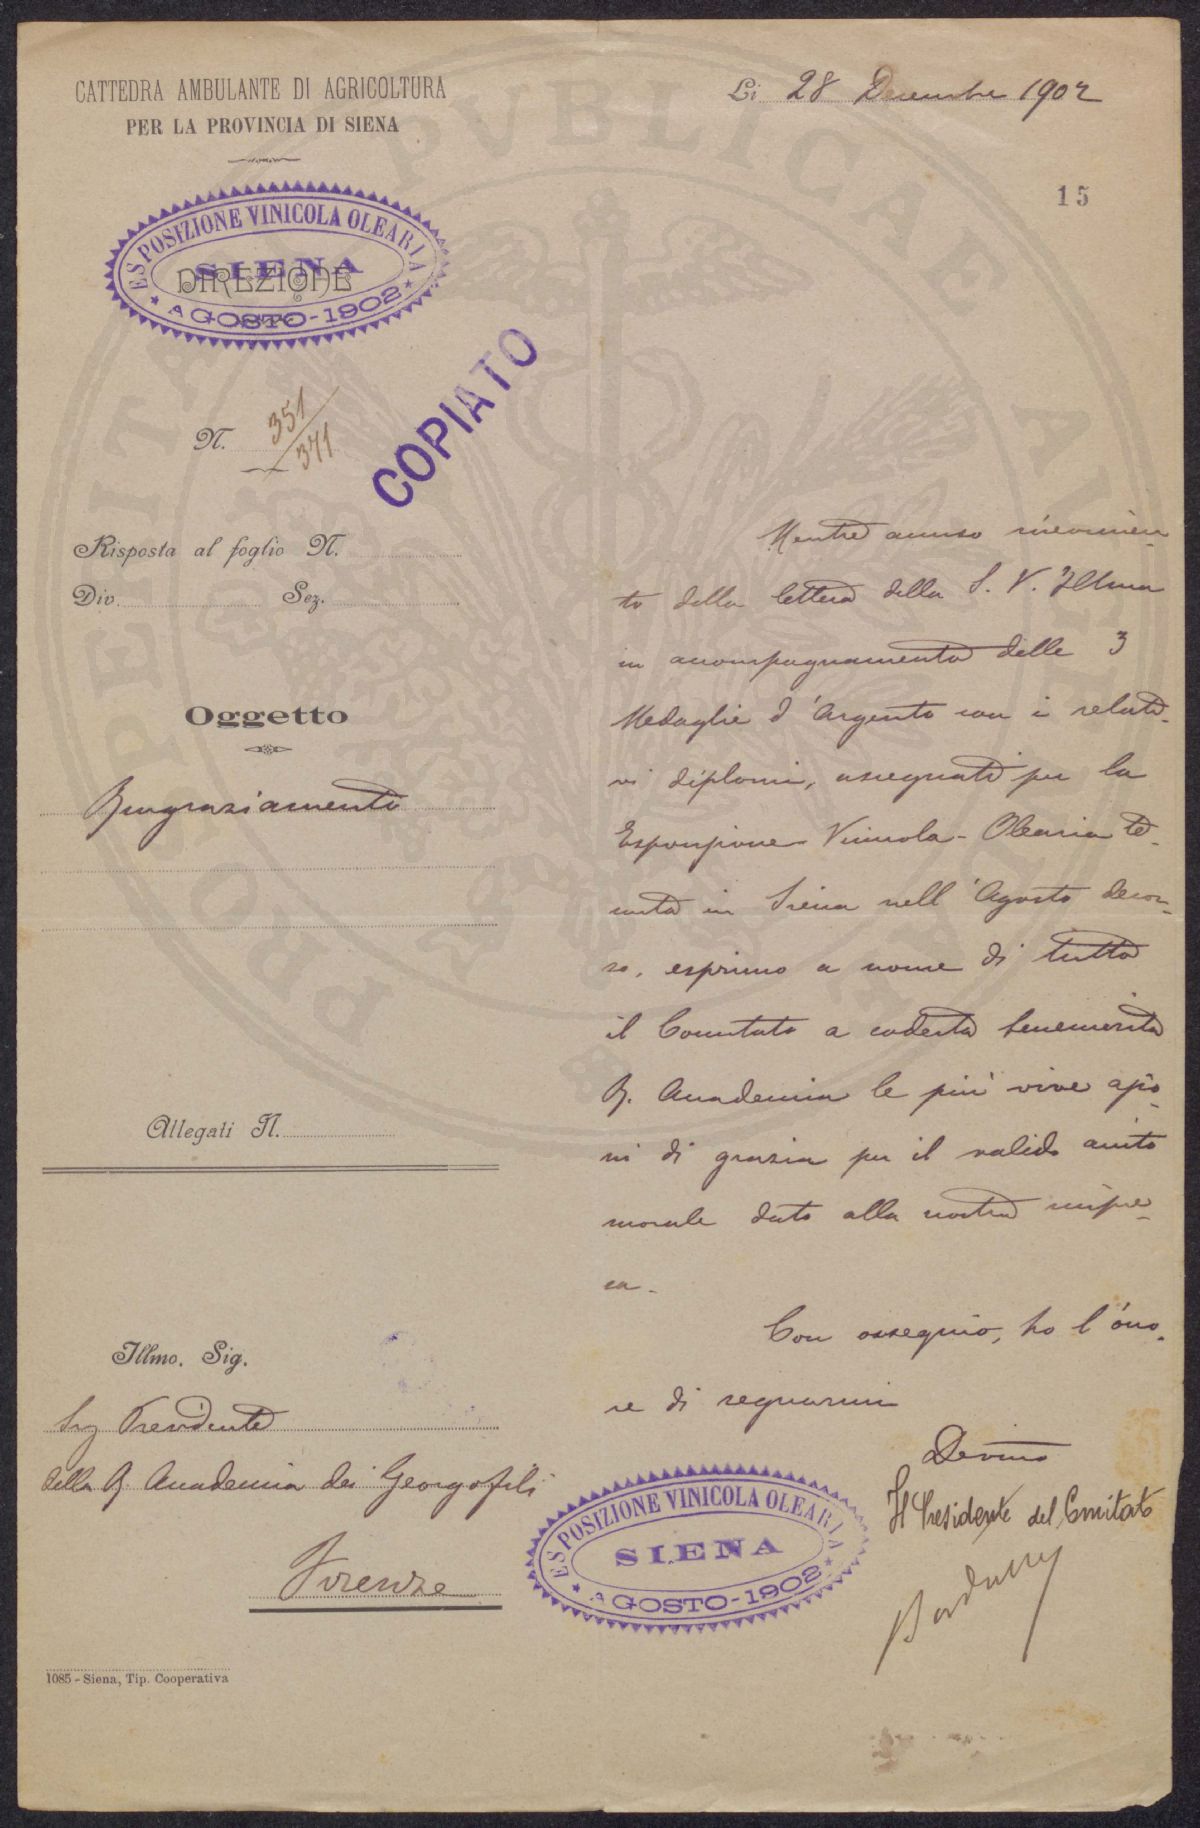 CATTEDRA AMBULANTE DI AGRICOLTURA
PER LA PROVINCIA DI SIENA
ESPOSIZIONE VINICOLA OLEARIA
SIENA
DIREZIONE
AGOSTO-1902
N. 351/371
COPIATO
Risposta al foglio N.
Div. Sez.
Oggetto
Ringraziamento
Allegati N.
Illmo. Sig.
Sig Presidente
della R. Accademia dei Georgofili
Firenze
1085 - Siena, Tip. Cooperativa
Li 28 Decembre 1902
15
Mentre accuso ricevimen-
to della lettera della S. V. Illma
in accompagnamento delle 3
Medaglie d'Argento con i relati-
vi diplomi, assegnati per la
Esposizione Vinicola-Olearia te-
nuta in Siena nell'Agosto decor-
so, esprimo a nome di tutto
il Comitato a codesta benemerita
R. Accademia le più vive azio-
ni di grazia per il valido aiuto
morale dato alla nostra impre-
sa.
Con ossequio, ho l'ono-
re di segnarmi
Devmo
Il Presidente del Comitato
ESPOSIZIONE VINICOLA OLEARIA
SIENA
AGOSTO-1902
PROSPERITATI PVBLICAE AVGENDAE